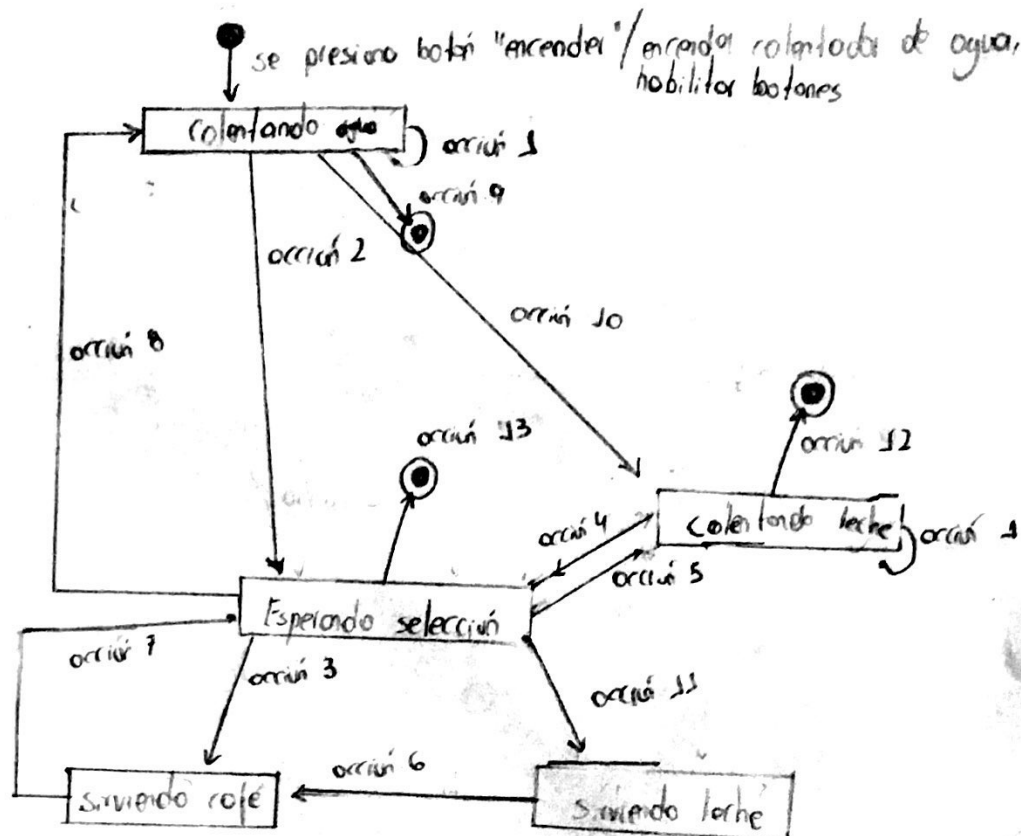 se presiona botón "encender"/encender calentador de agua,
habilitar botones
Calentando agua
acción 1
acción 9
acción 2
acción 10
acción 8
acción 13
acción 12
Calentando leche
acción 1
acción 4
acción 5
Esperando selección
acción 7
acción 3
acción 11
acción 6
sirviendo café
sirviendo leche